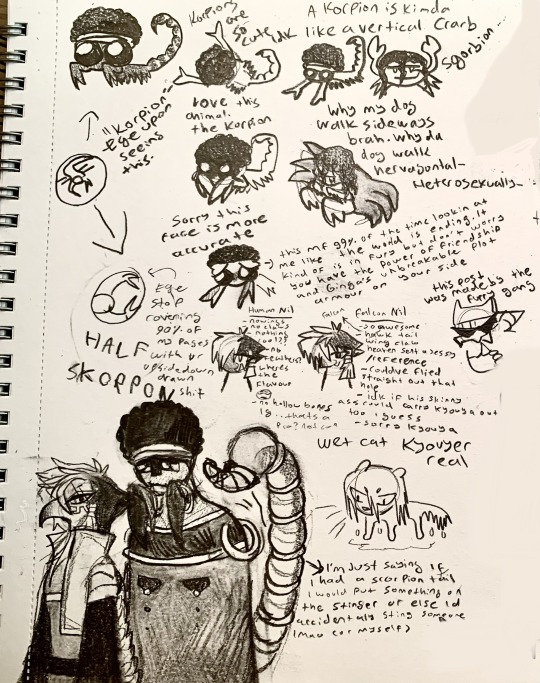 Korpions
are
so
cute idk
A Korpion is kinda
like a vertical Crarb
Sqorbion...
"Korpion"
Ege upon
seeing
this.
love this
animal.
the Korpion
Why my dog
walk sideways
brah. Why da
dog walk
Hervogontal-
Heterosexually-
Sorry this
face is more
accurate
this mf 99% of the time lookin at
me like the world is ending. It
kind of is in Fury but don't worry
you have the power of friendship
and Gingka's unbreakable plot
armour on your side
this post
was made by the
Furry gang
Ege
stop
ravening
90% of
my pages
with ur
upsidedown
drawn
shit
HALF
SKOPPON
Human Nil
- no wings
no claws
nothing
- no feathers?
wheres
the
flavour
- no hollow bones
Falcon Nil
- so awesome
hawk tail
wing claw
reference
- could've flied
straight out that
hole
- idk if his skinny
ass could carry kyouya out
too i guess
- sorry kyouya
wet cat Kyouyer
real
I'm just saying if
I had a scorpion tail
I would put something on
the stinger or else id
accidentaly sting someone
(mao (or myself)